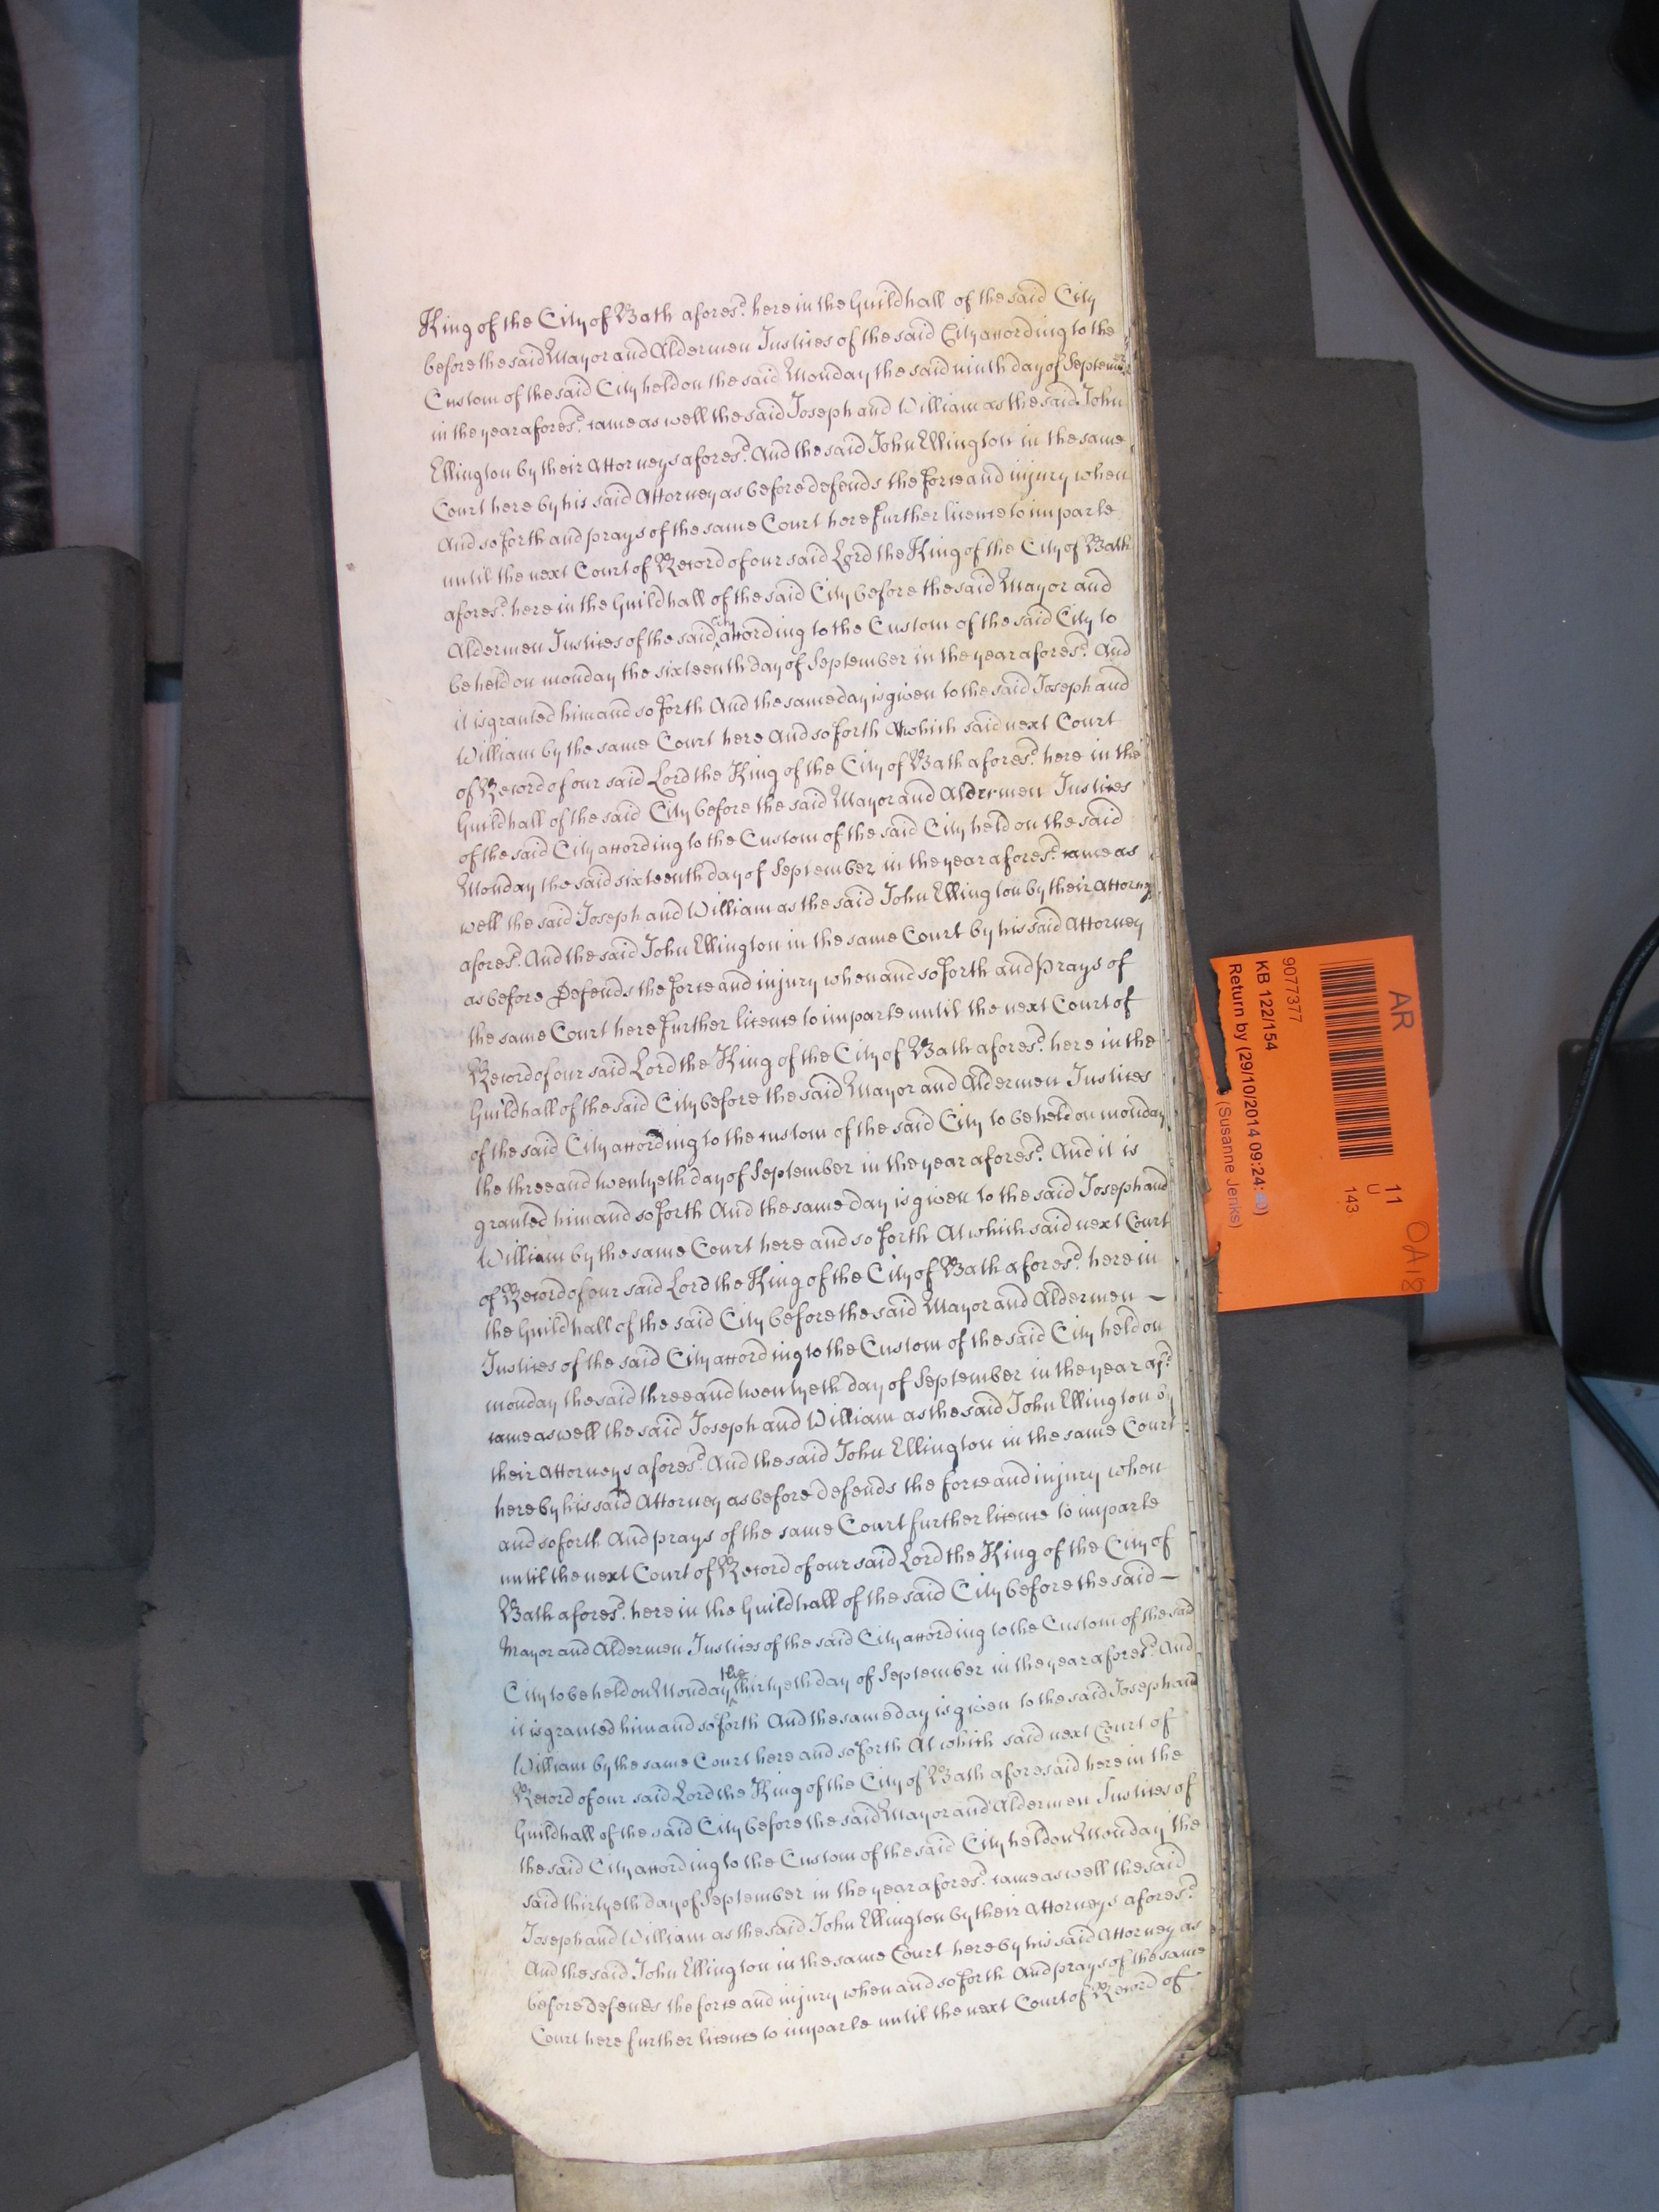 King of the City of Bath afores.d here in the Guildhall of the said City
before the said Mayor and Aldermen Justices of the said City according to the
Custom of the said City held on the said Monday the said ninth day of September
in the year afores.d came as well the said Joseph and William as the said John
Ellington by their Attorneys afores.d And the said John Ellington in the same
Court here by his said Attorney as before defends the force and injury when
And so forth and prays of the same Court here further licence to imparle
until the next Court of Record of our said Lord the King of the City of Bath
afores.d here in the Guildhall of the said City before the said Mayor and
Aldermen Justices of the said City according to the Custom of the said City to
be held on monday the sixteenth day of September in the year afores.d And
it is granted him and so forth And the same day is given to the said Joseph and
William by the same Court here And so forth At which said next Court
of Record of our said Lord the King of the City of Bath afores.d here in the
Guildhall of the said City before the said Mayor and Aldermen Justices
of the said City according to the Custom of the said City held on the said
Monday the said sixteenth day of September in the year afores.d came as
well the said Joseph and William as the said John Ellington by their Attorneys
afores.d And the said John Ellington in the same Court by his said Attorney
as before Defends the force and injury when and so forth and prays of
the same Court here further licence to imparle until the next Court of
Record of our said Lord the King of the City of Bath afores.d here in the
Guildhall of the said City before the said Mayor and Aldermen Justices
of the said City according to the custom of the said City to be held on monday
the three and twentyeth day of September in the year afores.d And it is
granted him and so forth And the same day is given to the said Joseph and
William by the same Court here and so forth At which said next Court
of Record of our said Lord the King of the City of Bath afores.d here in
the Guildhall of the said City before the said Mayor and Aldermen —
Justices of the said City according to the Custom of the said City held on
monday the said three and twentyeth day of September in the year af.d
came as well the said Joseph and William as the said John Ellington by
their Attorneys afores.d And the said John Ellington in the same Court
here by his said Attorney as before defends the force and injury when
and so forth And prays of the same Court further licence to imparle
until the next Court of Record of our said Lord the King of the City of
Bath afores.d here in the Guildhall of the said City before the said —
Mayor and Aldermen Justices of the said City according to the Custom of the said
City to be held on Monday the thirtyeth day of September in the year afores.d And
it is granted him and so forth And the same day is given to the said Joseph and
William by the same Court here and so forth At which said next Court of
Record of our said Lord the King of the City of Bath aforesaid here in the
Guildhall of the said City before the said Mayor and Aldermen Justices of
the said City according to the Custom of the said City held on Monday the
said thirtyeth day of September in the year afores.d came as well the said
Joseph and William as the said John Ellington by their Attorneys afores.d
And the said John Ellington in the same Court here by his said Attorney as
before defends the force and injury when and so forth And prays of the same
Court here further licence to imparle until the next Court of Record of
AR
11
U
143
9077377
KB 122/154
Return by (29/10/2014 09:24:
(Susanne Jenks)